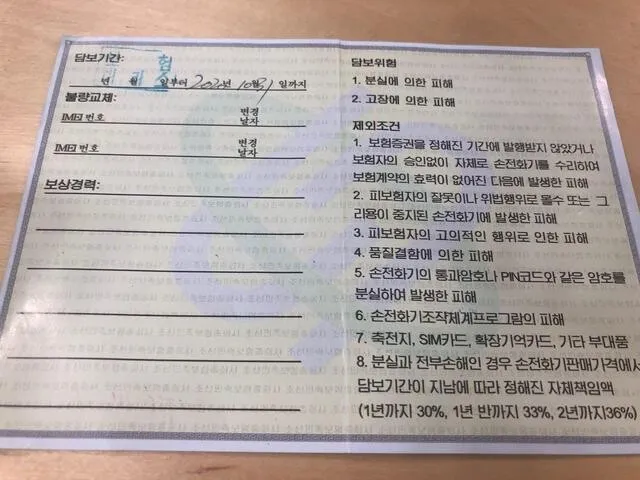 담보기간:
년 월 일부터 2020년 10월 31 일까지
불량교체:
IMEI번호 변경날자
IMEI번호 변경날자
보상경력:
담보위험
1. 분실에 의한 피해
2. 고장에 의한 피해
제외조건
1. 보험증권을 정해진 기간에 발행받지 않았거나
보험자의 승인없이 자체로 손전화기를 수리하여
보험계약의 효력이 없어진 다음에 발생한 피해
2. 피보험자의 잘못이나 위법행위로 몰수 또는 그
리용이 중지된 손전화기에 발생한 피해
3. 피보험자의 고의적인 행위로 인한 피해
4. 품질결함에 의한 피해
5. 손전화기의 통과암호나 PIN코드와 같은 암호를
분실하여 발생한 피해
6. 손전화기조작체계프로그람의 피해
7. 축전지, SIM카드, 확장기억카드, 기타 부대품
8. 분실과 전부손해인 경우 손전화기판매가격에서
담보기간이 지남에 따라 정해진 자체책임액
(1년까지 30%, 1년 반까지 33%, 2년까지36%)